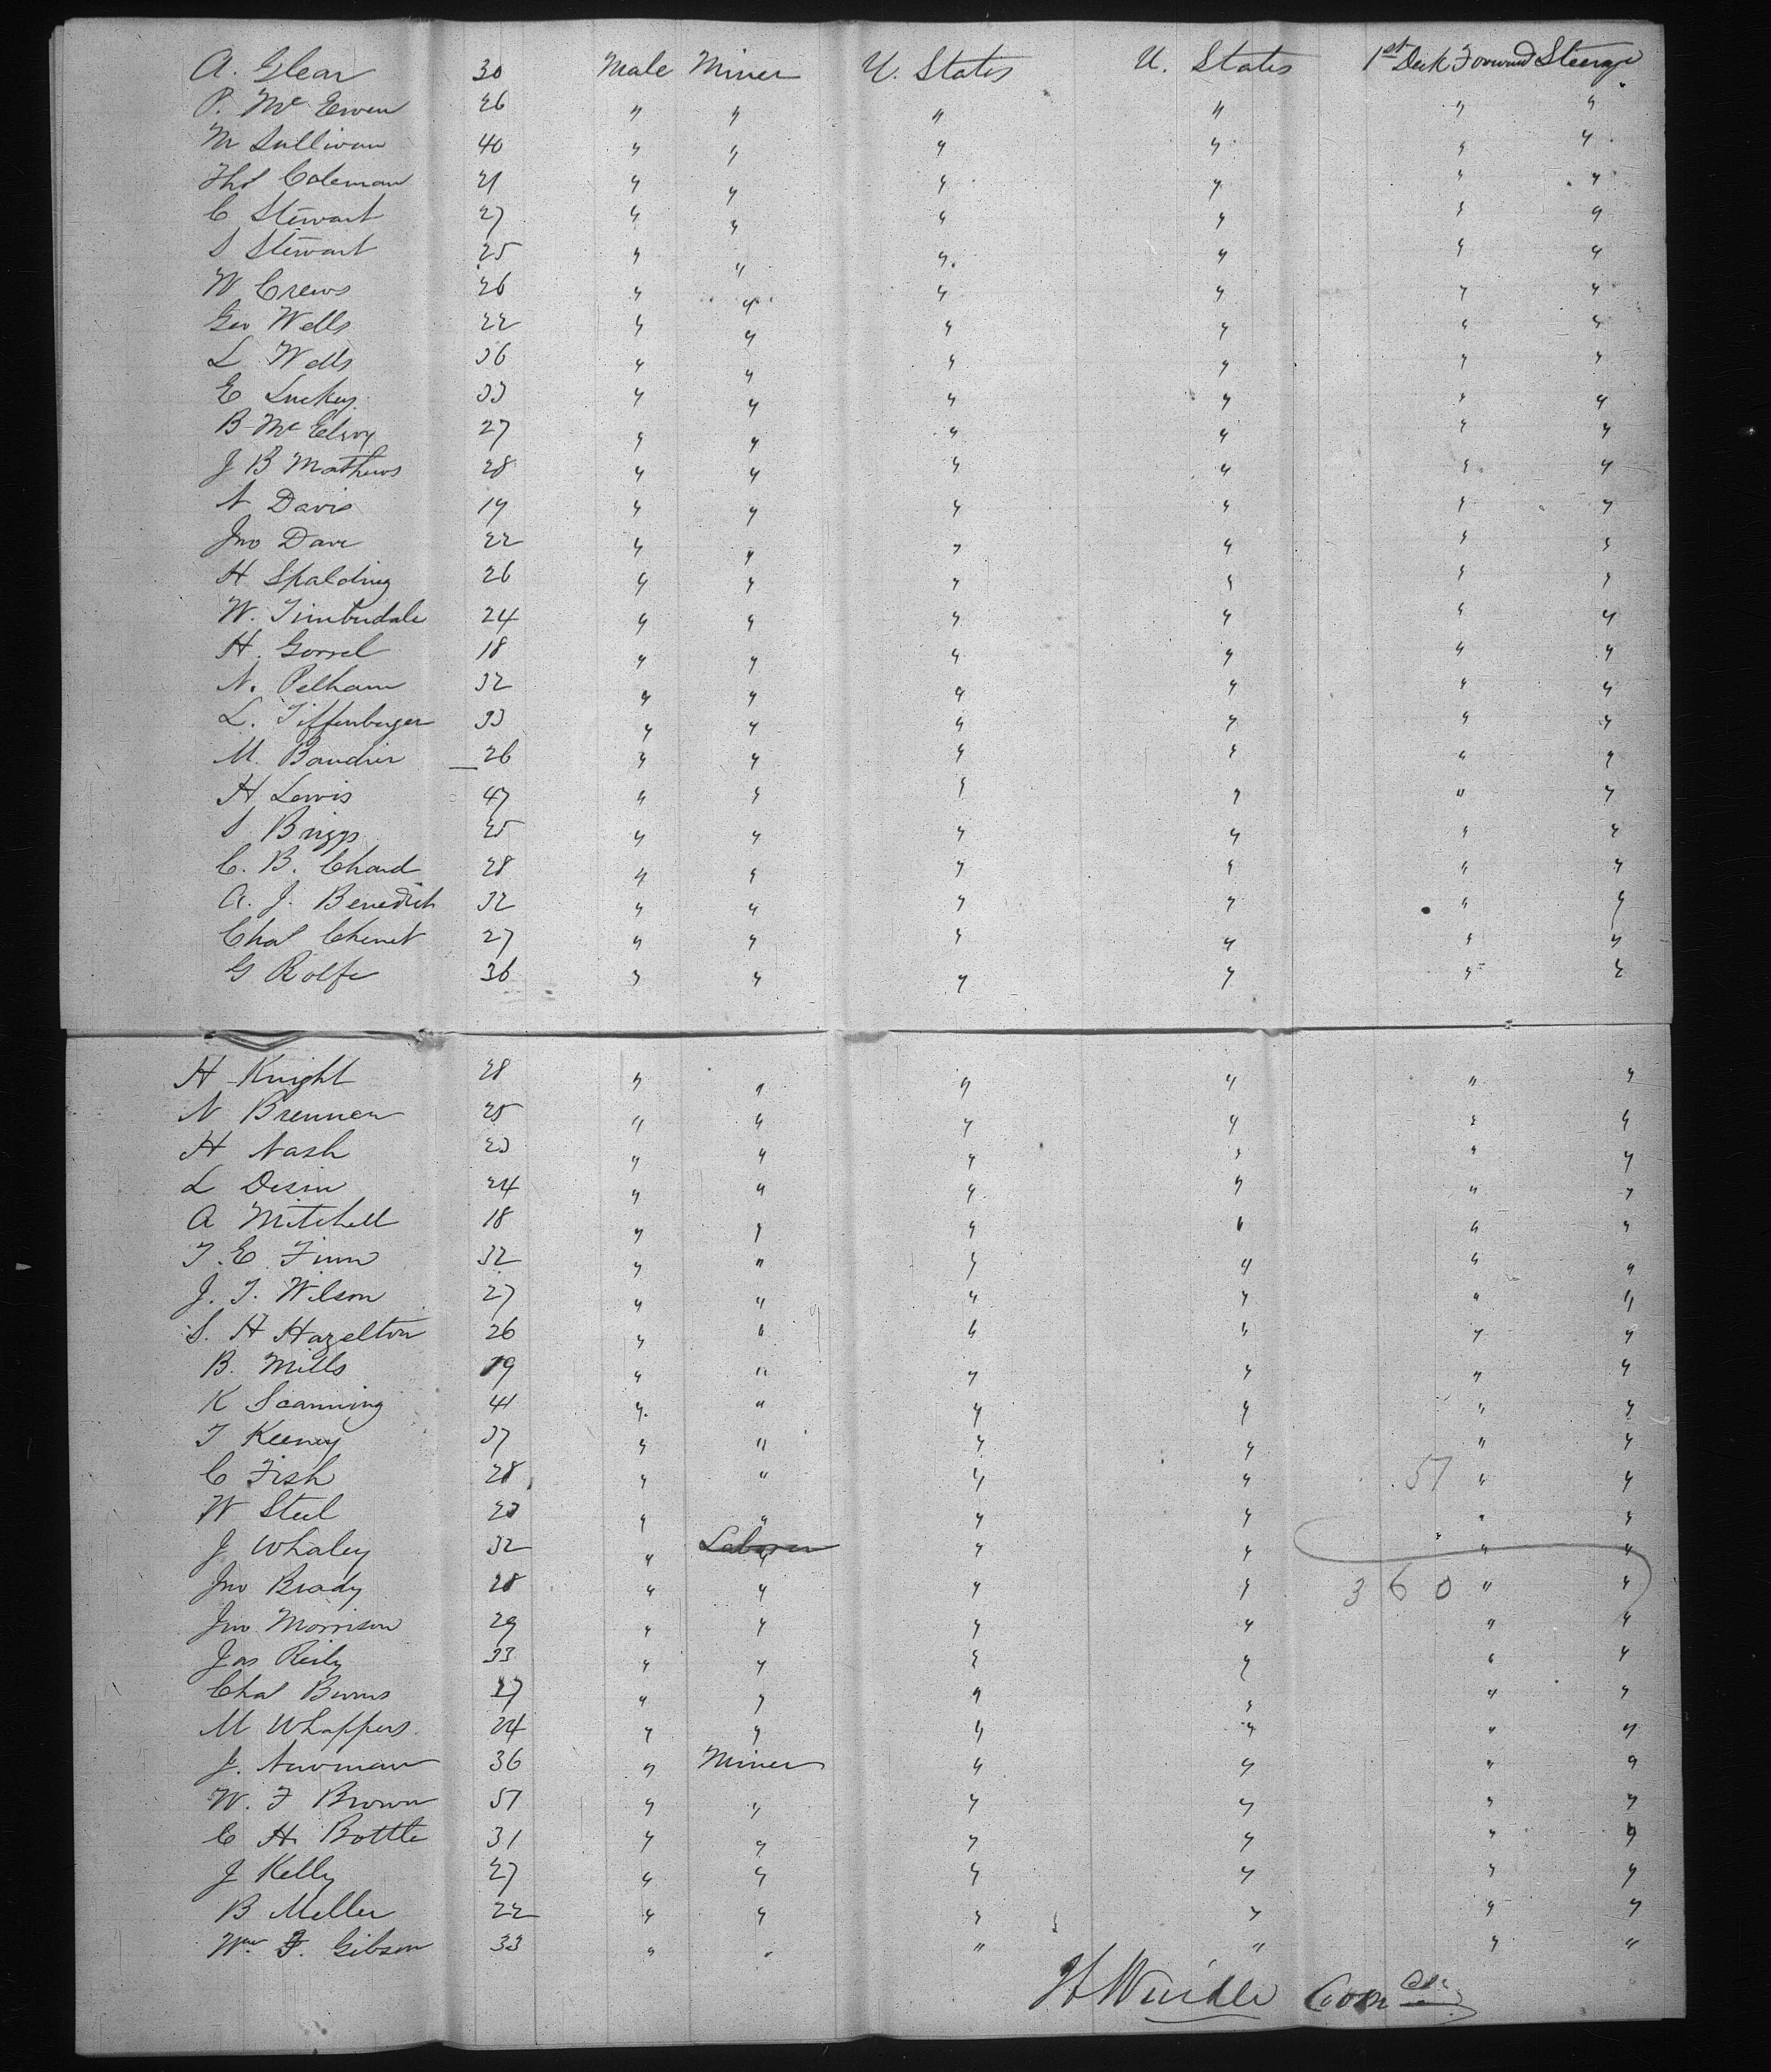 A. Glear 30 Male Miner U. States U. States 1st Deck Forward Steerage
P. Mc Ewen 26 " " " " " "
M Sullivan 40 " " " " " "
Thos Coleman 21 " " " " " "
C Stewart 27 " " " " " "
S Stewart 25 " " " " " "
W Crews 26 " " " " " "
Geo Wells 22 " " " " " "
L Wells 36 " " " " " "
E Luckey 33 " " " " " "
B Mc Elroy 27 " " " " " "
J B Mathews 28 " " " " " "
N Davis 19 " " " " " "
Jno Dave 22 " " " " " "
H Spalding 26 " " " " " "
W. Timberdale 24 " " " " " "
H. Gorrel 18 " " " " " "
N. Pelham 32 " " " " " "
L. Tiffenberger 33 " " " " " "
M. Baudrier 26 " " " " " "
H Lewis 47 " " " " " "
S Briggs 25 " " " " " "
C. B. Chard 28 " " " " " "
A. J. Benedict 32 " " " " " "
Chas Chenet 27 " " " " " "
G Rolfe 36 " " " " " "
H Knight 28 " " " " " "
N Brennen 25 " " " " " "
H Nash 23 " " " " " "
L Desin 24 " " " " " "
A Mitchell 18 " " " " " "
T. E. Finn 32 " " " " " "
J. T. Wilson 27 " " " " " "
S. H Hazelton 26 " " " " " "
B. Mills 19 " " " " " "
K Scanning 41 " " " " " "
T Keeney 37 " " " " " "
C Fish 28 " " " " 57 " "
W Steel 23 " " " " " "
J Whaley 32 " Laborer " " " "
Jno Brady 28 " " " " 360 " "
Jno Morrison 29 " " " " " "
Jas Reily 33 " " " " " "
Chas Burns 27 " " " " " "
M Whappers 24 " " " " " "
J. Newman 36 " Miner " " " "
W. F Brown 51 " " " " " "
C H Bottle 31 " " " " " "
J Kelly 27 " " " " " "
B Meller 22 " " " " " "
Wm F. Gibson 33 " " " " " "